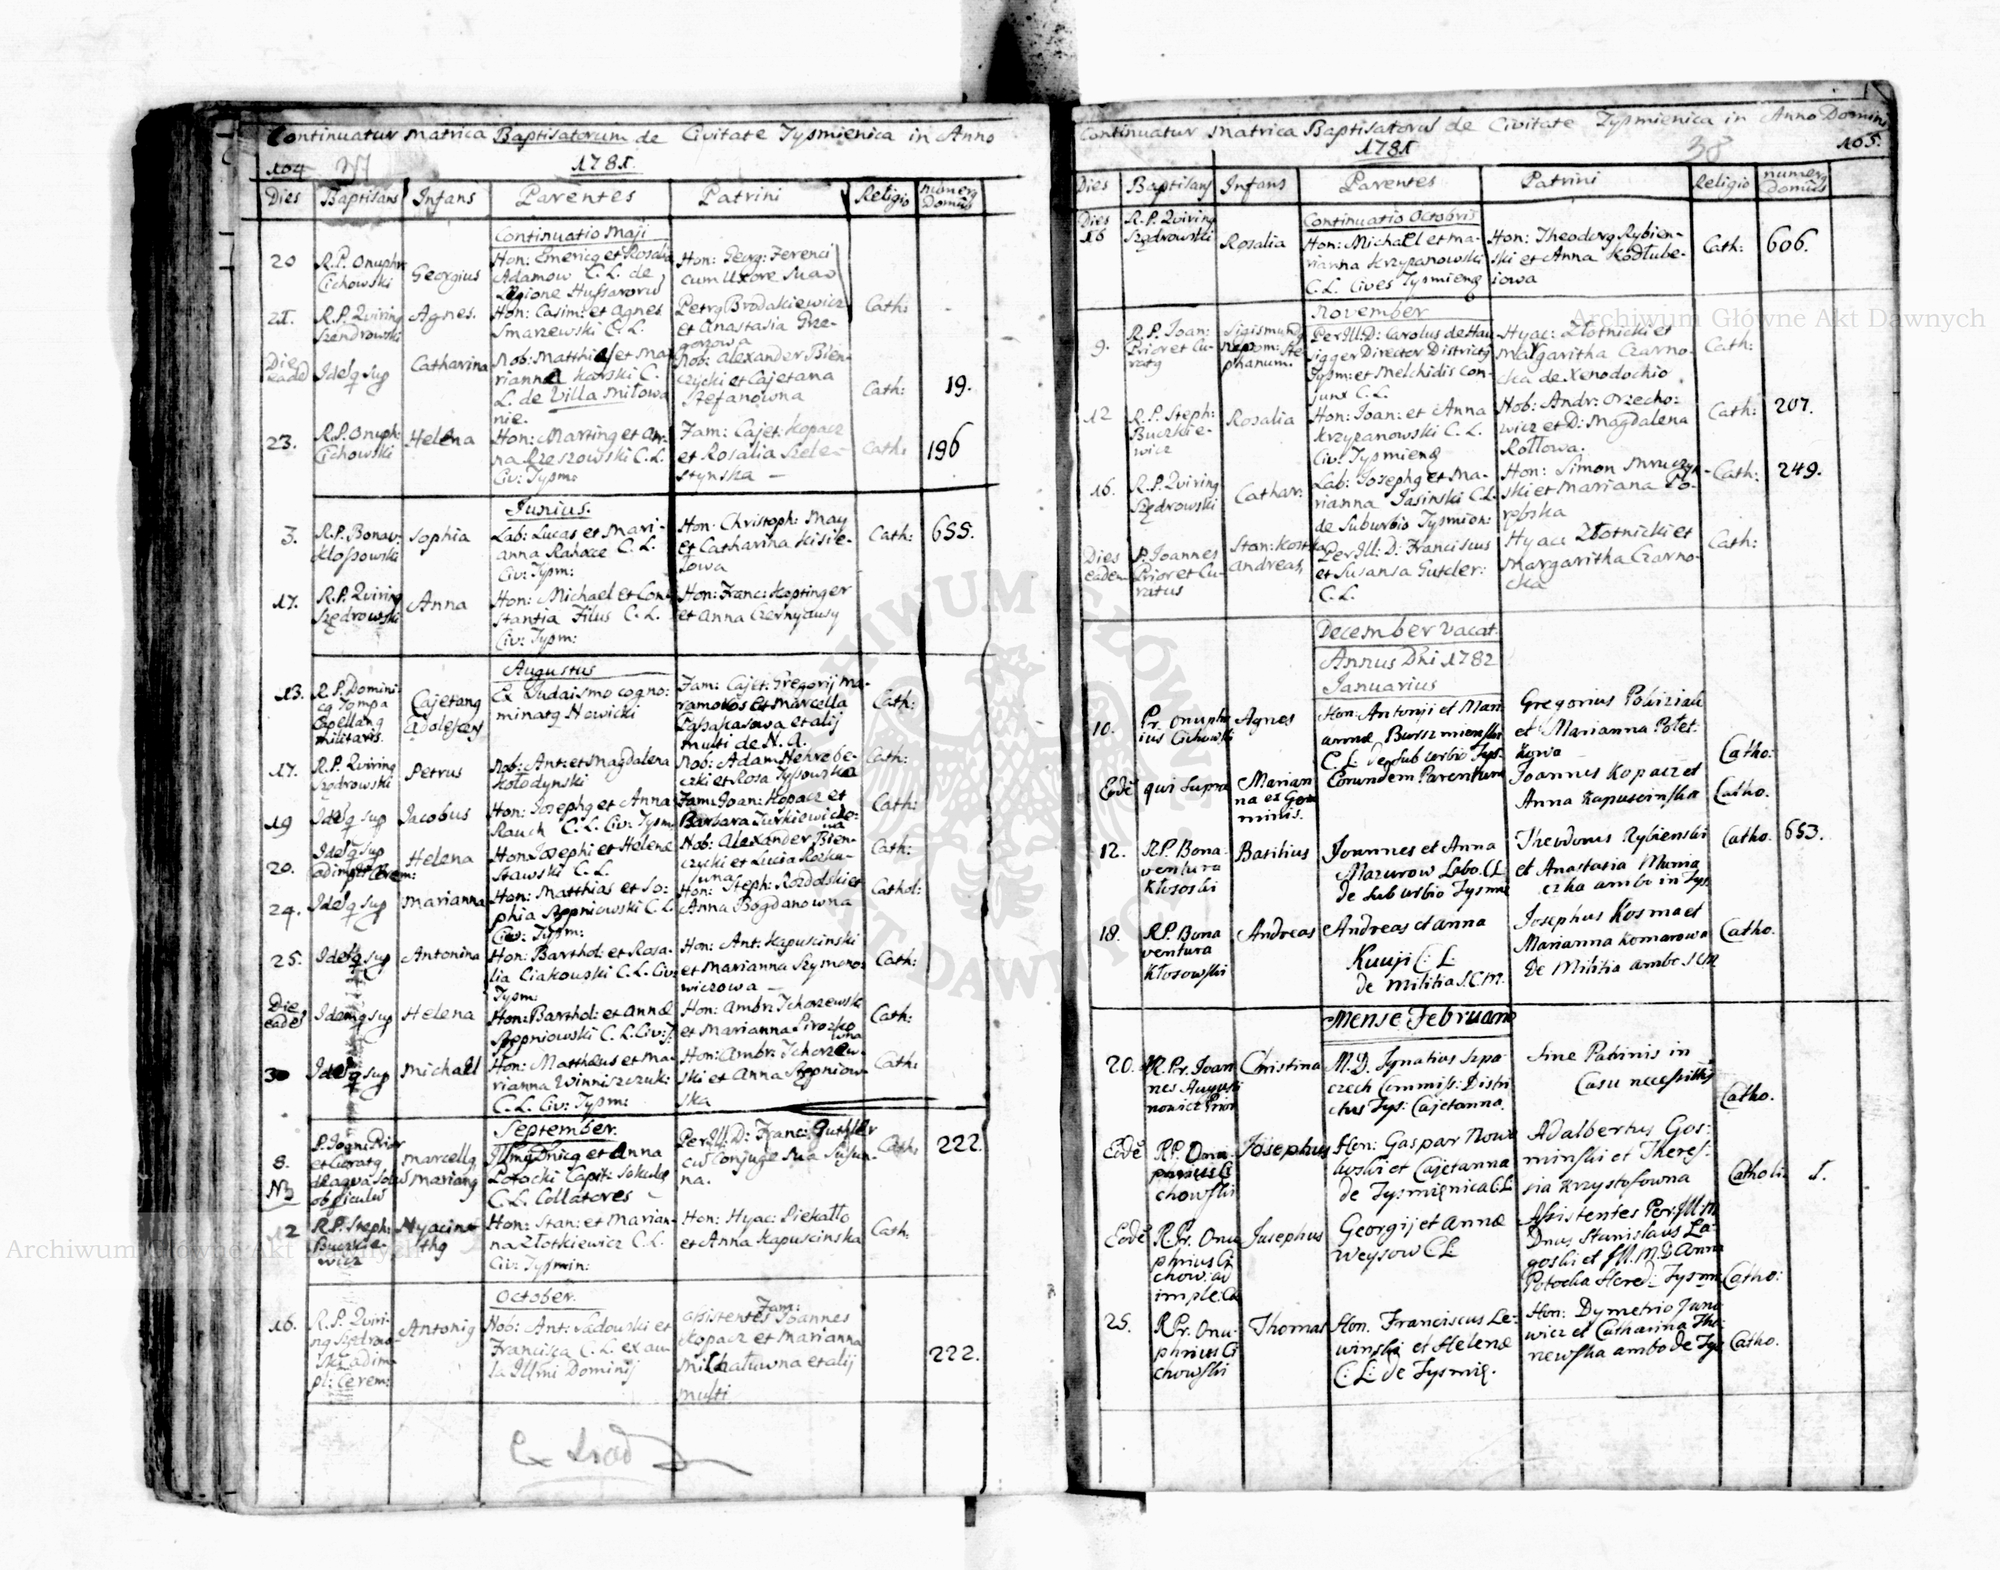 Continuatur Matrica Baptisatorum de Civitate Tysmienica in Anno
104 1781.
Dies Baptisans Infans Parentes Patrini Religio numerg Domus
Continuatio Maji
20 R.P. Onuphr Cichowski
Georgius
Hon: Emericg et Rosalia
Adamow C. L. de
Legione Hussarorum
Hon: Georg: Ferenci
cum Uxore Sua
21. R.P. Quiring Szendrowski
Agnes.
Hon: Casim: et Agnes
Smarzewski C. L.
Petrg Brodakiewicz
et Anastasia Grze-
gorzowa
Cath:
Die eadd Idequi sup
Catharina
Nob: Matthias et Ma-
rianna Karski C.
L. de Villa Miłowa
nie.
Nob: Alexander Bien-
czycki et Cajetana
Stefanowna
Cath: 19.
23. R.P. Onuph: Cichowski
Helena
Hon: Marting et An-
na Rzeszowski C. L.
Civ: Tysm:
Fam: Cajet: Kopacz
et Rosalia Szele-
styńska —
Cath: 196
Junius.
3. R.P. Bonav: Kłossowski
Sophia
Lab: Lucas et Mari-
anna C. L.
Civ: Tysm:
Hon: Christoph: May
et Catharina Kisie-
lowa
Cath: 655.
17. R.P. Quiring Szędrowski
Anna
Hon: Michael et Con-
stantia Filus C. L.
Civ: Tysm:
Hon: Franc: Koptinger
et Anna
Augustus
13. R.P. Domini-
cg Pompa
Capellang
militaris.
Cajetang
adolescens
Ex Judaismo cogno-
minatg Nowicki
Fam: Cajet: Gregorij Ma-
ramoros et Marcella
et alij
multi de N. A.
Cath:
17. R.P. Quiring Szędrowski
Petrus
Nob: Ant: et Magdalena
Kołodynski
Nob: Adam Nehrebe-
czki et Rosa Tysowska
Cath:
19 Idequi sup
Jacobus
Hon: Josephg et Anna
Rauch C. L. Civ: Tysm
Fam: Joan: Kopacz et
Barbara Turkiewiczo-
wna
Cath:
20. Idequi sup
Helena
Hon: Josephi et Helenæ
Stawski C. L.
Nob: Alexander Bien-
czycki et Lucia
Cath:
24. Idequi sup
Marianna
Hon: Matthias et So-
phia Stępniowski C. L.
Civ: Tysm:
Hon: Steph: Rozdolski et
Anna Bogdanowna
Cathol:
25. Idequi sup
Antonina
Hon: Barthol: et Rosa-
lia Ciakowski C. L. Civ:
Tysm:
Hon: Ant: Kapuscinski
et Marianna Szymono-
wiczowa —
Cath:
Die eadeş Idequi sup
Helena
Hon: Barthol: et Annæ
Stępniowski C. L. Civ: T.
Hon: Ambr: Tchorzewsk
et Marianna Pirozko
wna
Cath:
30 Idequi sup
Michael
Hon: Matthæus et Ma-
rianna Winniszczuk:
C. L. Civ: Tysm:
Hon: Ambr: Tchorzew-
ski et Anna Stępniow-
ska
Cath:
September.
8. P. Joan: Prior
et Curatg
de aqua solum
ob periculum
Marcellg
Mariang
Illmg Dnicg et Anna
Potocki Capit:
C. L. Collatores —
Per Ill: D: Franc: Guthler
cum Conjuge Sua Susan-
na.
Cath: 222.
12 R.P. Steph: Buczkie-
wicz
Hyacin-
thg
Hon: Stan: et Marian-
na Złotkiewicz C. L.
Civ: Tysmin:
Hon: Hyac: Piekałło
et Anna Kapuscinska
Cath:
October.
16. R.P. Quiri-
ng Szędrow
ski adim-
pl: Cerem:
Antonig
Nob: Ant: Sadowski et
Francisca C. L. ex au-
la Illmi Dominij
Assistentes Fam: Joannes
Kopacz et Marianna
Michałuwna et alij
multi
222.
Continuatur Matrica Baptisatorum de Civitate Tysmienica in Anno Domini
1781 38 105.
Dies Baptisans Infans Parentes Patrini Religio numerg Domus
Continuatio Octobris
Dies 16 R.P. Quiring Szędrowski
Rosalia
Hon: Michael et Ma-
rianna Krzyzanowski
C. L. Cives Tysmieng
Hon: Theodorg Rybien-
ski et Anna Kodłube-
iowa
Cath: 606.
November
9. R.P. Joan:
Prior et Cu-
ratg
Sigismundg
Nepom: Ste-
phanum.
Per Ill: D: Carolus de Hau
sigger Director Districtg
Tysm: et Melchidis con-
junx C. L.
Hyac: Złotnicki et
Margaritha Czarno-
cka de Xenodochio
Cath:
12 R.P. Steph:
Buczkie-
wicz
Rosalia
Hon: Joan: et Anna
Krzyzanowski C. L.
Civ: Tysmieng
Nob: Andr: Orzecho-
wicz et D: Magdalena
Rołłowa.
Cath: 207.
16. R.P. Quiring
Szędrowski
Cathar:
Lab: Josephg et Ma-
rianna Jasinski C. L.
de Suburbio Tysmien:
Hon: Simon Mruczyk-
ski et Mariana Po-
rębska
Cath: 249.
Dies eadem P. Joannes
Prior et Cu-
ratus
Stan: Kostka
Andreas,
Per Ill: D: Franciscus
et Susansa Gutkler:
C. L.
Hyac: Złotnicki et
Margaritha Czarno-
cka
Cath:
December vacat.
Annus Dni 1782
Januarius
10. Pr. Onuphr
ius Cichowski
Agnes
Hon: Antonji et Mari
annæ
C. L. de Suburbio Tys.
Gregorius
et Marianna
Catho:
Eode qui supra
Marian
na ex Ge
minis.
Eorundem Parentum
Joannes Kopacz et
Anna Kapuscinska
Catho.
12. R.P. Bona
ventura
Kłososki
Basilius
Joannes et Anna
Mazurow Labo. C. L.
de Suburbio Tysmie
Theodorus Rybienski
et Anastasia
ambo in Tys.
Catho. 653.
18. R.P. Bona
ventura
Kłosowski
Andreas
Andreas et Anna
Kuuji C: L:
de Militia S.C.M.
Josephus Kosma et
Marianna Komarowa
de Militia ambo S.C.M
Catho.
Mense Februario
20. R. Pr. Joan
nes Augusti
nowicz Prior
Christina
M. D. Ignatius Szpa
czech Commiss: Distri
ctus Tys: Cajetanna.
Sine Patrinis in
Casu necessitatis
Catho.
Eode R.P. Onu
phrius Ci
chowski
Josephus
Hon: Gaspar Nowo
et Cajetanna
de Tysmienica C. L
Adalbertus Gos-
minski et Theres-
sia Krzystofowna
Catholi: 1.
Eode R. Pr. Onu
phrius Ci
chow: ad
imple: Ce
Josephus
Georgij et Annæ
Weysow C. L
Assistentes Per Ill: M.
Dnus Stanislaus La-
goski et Ill. M. D. Anna
Potocka Hered: Tysm:
Catho:
25. R. Pr. Onu-
phrius Ci
chowski
Thomas
Hon. Franciscus Le-
winski et Helenæ
C: L: de Tysmię.
Hon: Dymetrio Juno
wicz et Catharina Tho-
newska ambo de Tys
Catho.
Archiwum Główne Akt Dawnych
Archiwum Główne Akt Dawnych
ARCHIWUM GŁÓWNE AKT DAWNYCH